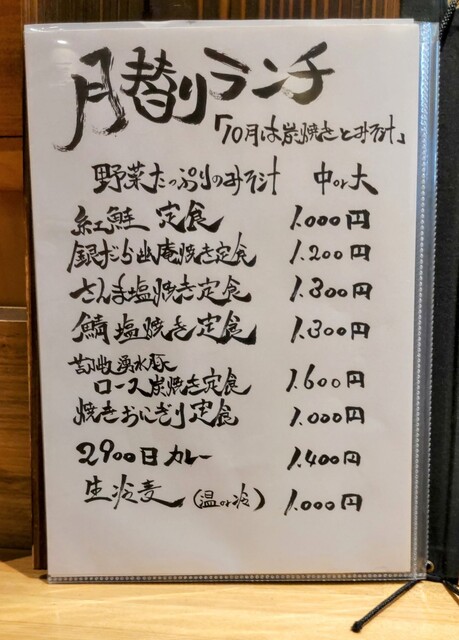 月替りランチ
「10月は炭焼きとみそ汁」
野菜たっぷりのみそ汁 中or大
紅鮭 定食 1.000円
銀だら幽庵焼き定食 1.200円
さんま塩焼き定食 1.300円
鯖塩焼き定食 1.300円
湧水豚
ロース炭焼き定食 1.600円
焼きおにぎり定食 1.000円
2900日カレー 1.400円
生冷麦 (温or冷) 1.000円